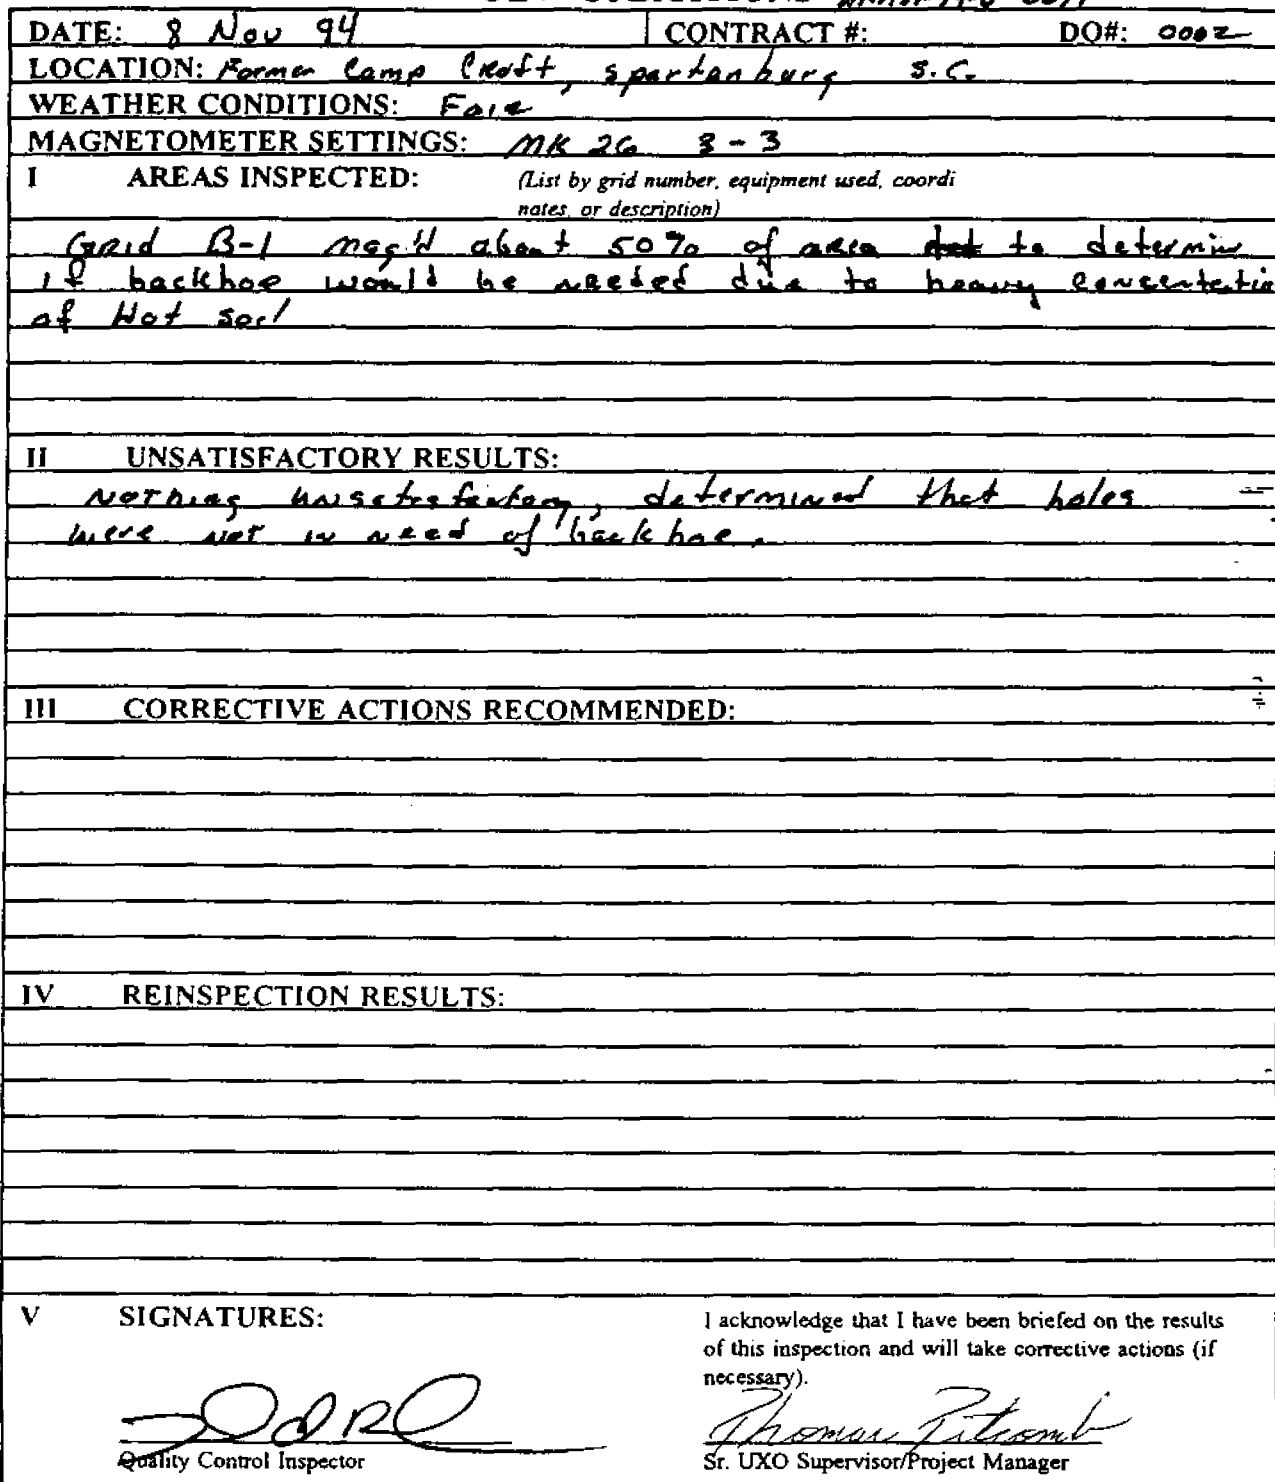 DATE: 8 Nov 94 CONTRACT #: DO#: 0002
LOCATION: Former Camp Croft, Spartanburg S.C.
WEATHER CONDITIONS: Fair
MAGNETOMETER SETTINGS: MK 26 3-3
I AREAS INSPECTED: (List by grid number, equipment used, coordi
nates, or description)
Grid B-1 mag'd about 50% of area to determin
if backhoe would be needed due to heavy concentratio
of Hot soil
II UNSATISFACTORY RESULTS:
Nothing unsatisfactory, determined that holes
were not in need of backhoe.
III CORRECTIVE ACTIONS RECOMMENDED:
IV REINSPECTION RESULTS:
V SIGNATURES:
I acknowledge that I have been briefed on the results
of this inspection and will take corrective actions (if
necessary).
Thomas Pitcomb
Quality Control Inspector
Sr. UXO Supervisor/Project Manager